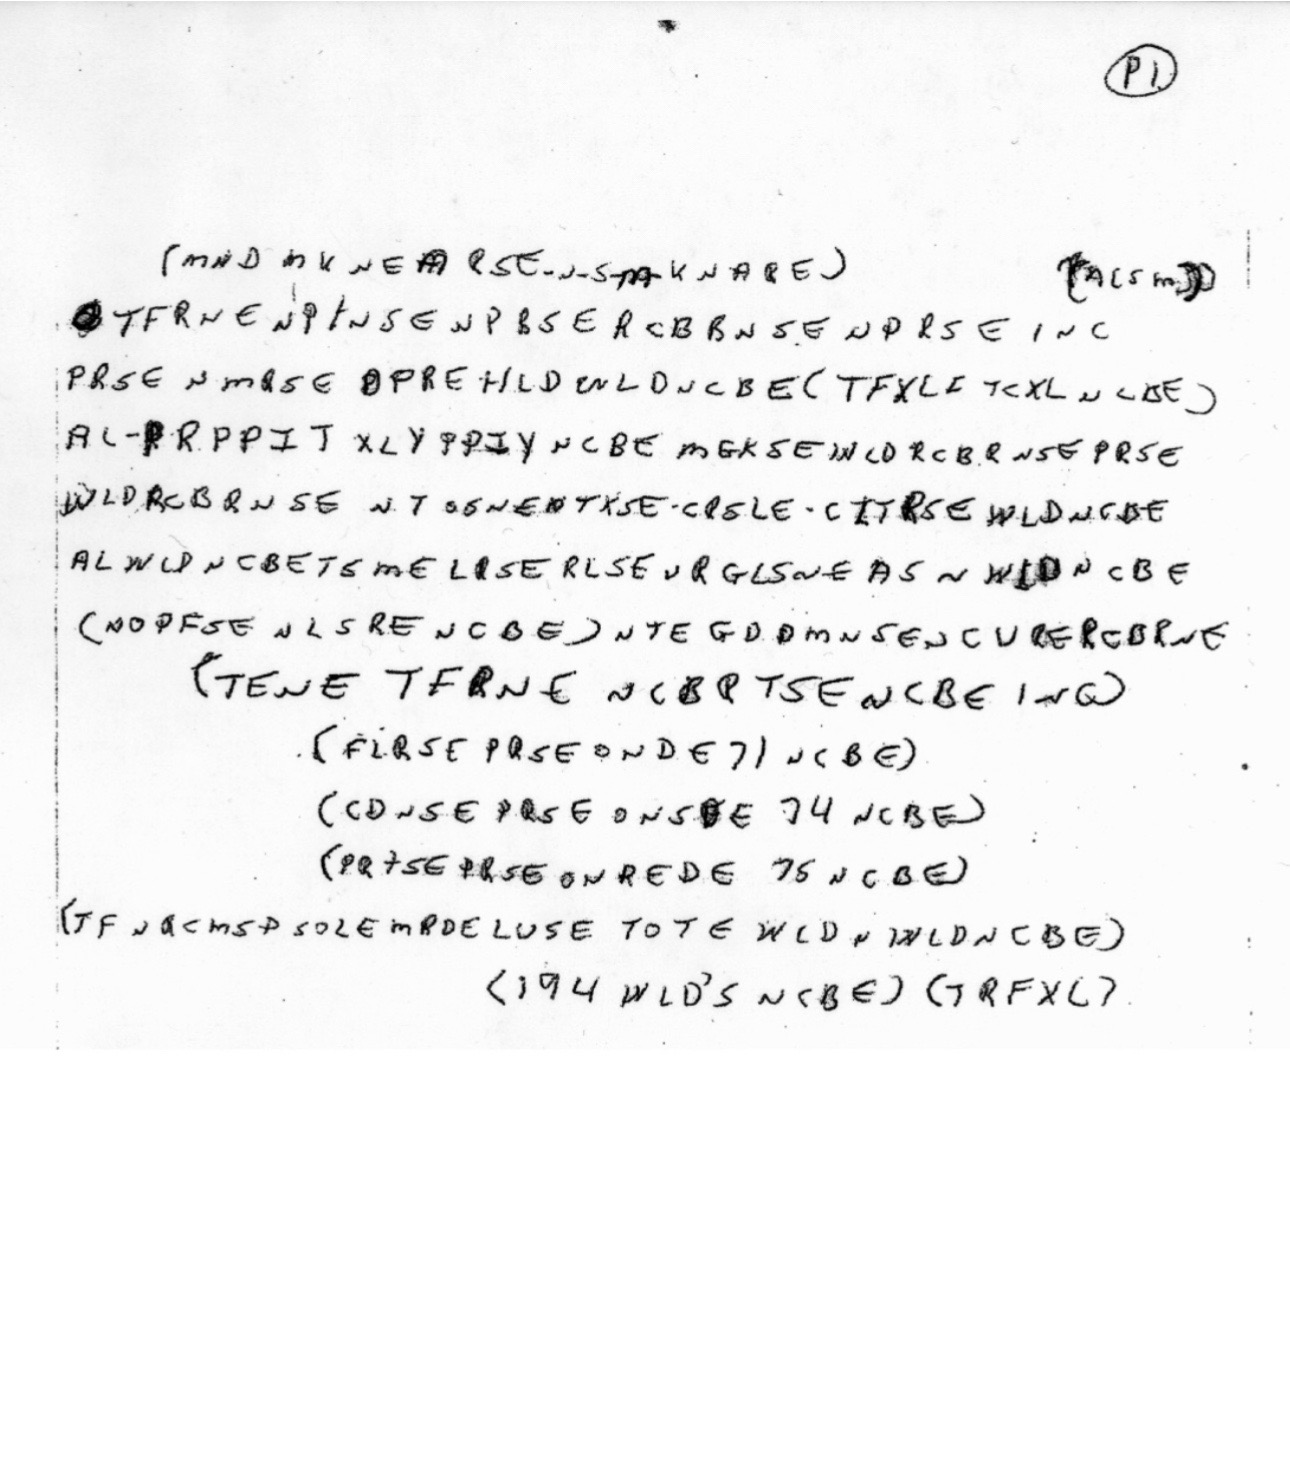 P1
(MND MKNEARSE-N-S-M-KNARE) (ACSM)
TFRNENPINSENPBSERCBBNSENPRSEINC
PRSENMRSEOPREHLDWLDNCBE(TFXLFTCXLNCBE)
AL-PRPPITXLYPPIYNCBEMGKSEWLDRCBRNSEPRSE
WLDRCBRNSENTOSNENTXSE-CRSLE-CITRSEWLDNCBE
ALWLPNCBETSMELRSERLSEURGLSNEASNWLDNCBE
(NOPFSENLSRENCBE)NTEGDDMNSENCURERCBRNE
(TENETFRNENCBRTSENCBEINC)
(FLRSEPRSEONDE71NCBE)
(CDNSEPRSEONSDE74NCBE)
(PRTSEPRSEONREDE75NCBE)
(TFNRCMSPSOLEMRDELUSETOTEWLDNWLDNCBE)
(194WLD'SNCBE)(TRFXL)